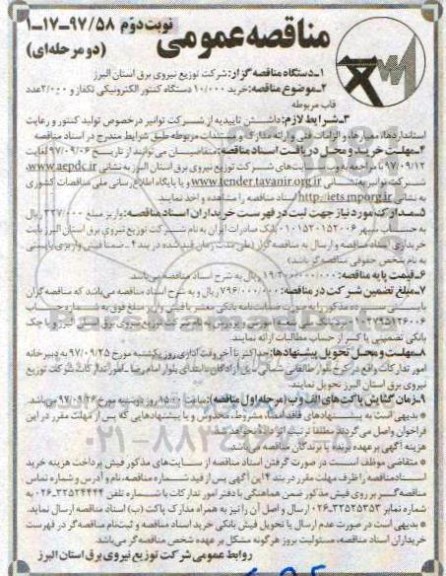 مناقصه عمومی
نوبت دوم ۹۷/۵۸-۱۷-۱
(دو مرحله‌ای)
۱-دستگاه مناقصه گزار: شرکت توزیع نیروی برق استان البرز
۲-موضوع مناقصه: خرید ۱۰/۰۰۰ دستگاه کنتور الکترونیکی تکفاز و ۲/۵۰۰ عدد
قاب مربوطه
۳-شرایط لازم: داشتن تاییدیه از شرکت توانیر درخصوص تولید کنتور و رعایت
استانداردها، معیارها، و الزامات فنی و ارائه مدارک و مستندات مربوطه طبق شرایط مندرج در اسناد مناقصه
۴-مهلت خرید و محل دریافت اسناد مناقصه: متقاضیان می توانند از تاریخ ۹۷/۰۹/۰۶ لغایت
۹۷/۰۹/۱۲ با مراجعه به وب سایت‌های شرکت توزیع نیروی برق استان البرز به نشانی www.aepdc.ir،
شرکت توانیر به نشانی www.tender.tavanir.org.ir و یا پایگاه اطلاع رسانی ملی مناقصات کشوری
به نشانی http://iets.mporg.ir اسناد مناقصه را مشاهده و اخذ نمایند.
۵-مدارک مورد نیاز جهت ثبت در فهرست خریداران اسناد مناقصه: واریز مبلغ ۲۲۷/۰۰۰ ریال
به حساب سپهر بانک صادرات ایران به نام شرکت توزیع نیروی برق استان البرز بابت
خریداری اسناد مناقصه و ارسال به مناقصه گزار (طی مدت زمان قید شده در بند ۴ - ضمنا فیش واریزی بایستی
به نام شخص حقوقی مناقصه‌گر باشد)
۶-قیمت پایه مناقصه: ریال به شرح اسناد مناقصه می‌باشد
۷-مبلغ تضمین شرکت در مناقصه: ۷۹۶/۰۰۰/۰۰۰ ریال و به شرح اسناد مناقصه می‌باشد که مناقصه گران
بایستی ضمانت‌نامه بانکی معتبر یا فیش واریز مبلغ فوق به شماره حساب
شرکت توزیع نیروی برق استان البرز و یا چک
بانکی تضمینی یا کسر از حساب مطالبات ارائه نمایند.
۸-مهلت و محل تحویل پیشنهادها: حداکثر تا آخر وقت اداری روز یکشنبه مورخ ۹۷/۰۹/۲۵ به دبیرخانه
امور تدارکات واقع در کرج بلوار طالقانی شمالی میدان آزادگان ابتدای بلوار امام رضا شرکت توزیع
نیروی برق استان البرز تحویل نمایند.
۹-زمان گشایش پاکت های الف و ب (مرحله اول مناقصه): ساعت روز دوشنبه مورخ ۹۷/۰۹/۲۶ می‌باشد.
* بدیهی است به پیشنهادهای فاقد امضاء، مشروط، مخدوش و یا پیشنهادهایی که پس از مهلت مقرر در این
فراخوان واصل می گردند مطلقا ترتیب اثر داده نخواهد شد.
هزینه آگهی بر عهده برنده یا برندگان مناقصه می‌باشد.
* متقاضی موظف است در صورت گرفتن اسناد مناقصه از سایت‌های مذکور فیش پرداخت هزینه خرید
اسناد مناقصه را ظرف مهلت مقرر در بند ۴ این آگهی پس از قید شماره مناقصه، نام و آدرس و شماره تماس
مناقصه‌گر بر روی فیش مذکور ضمن هماهنگی با دفتر امور تدارکات با شماره تلفن به
شماره نمابر ارسال و اصل آن را نیز به همراه مدارک پاکت (ب) اسناد مناقصه ارسال نماید.
* بدیهی است در صورت عدم ارسال یا تحویل فیش بانکی خرید اسناد مناقصه و ثبت نام مناقصه گر در فهرست
خریداران اسناد مناقصه، مسئولیت بروز هرگونه مشکل بر عهده شخص مناقصه گر می‌باشد
روابط عمومی شرکت توزیع نیروی برق استان البرز